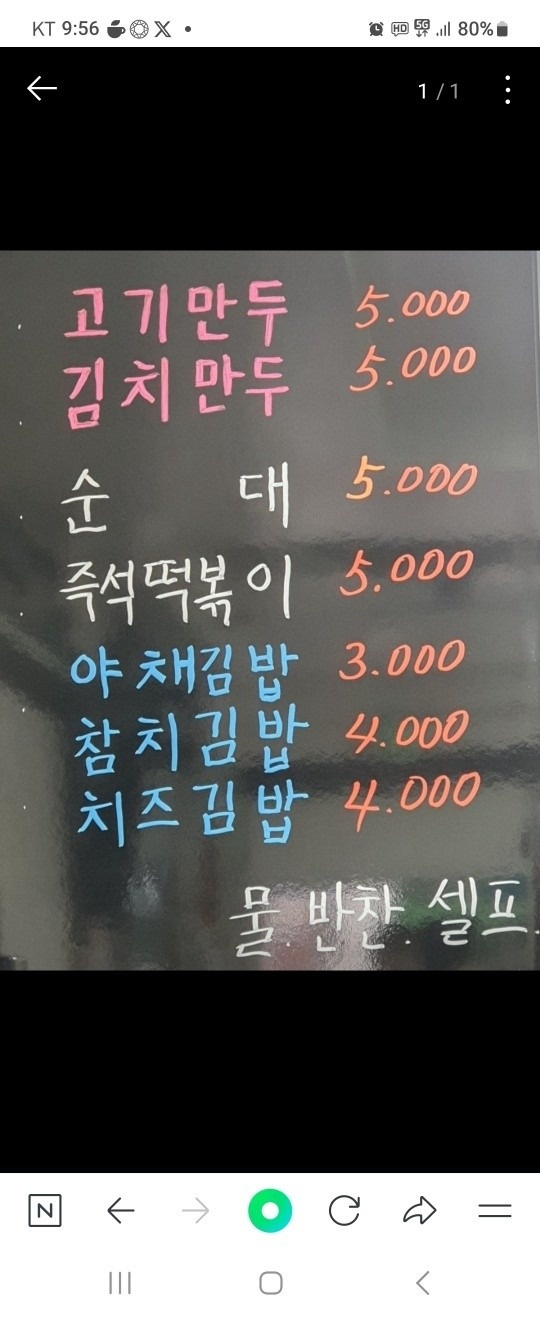 KT 9:56
5G
HD
80%
1 / 1
고기만두 5.000
김치만두 5.000
순 대 5.000
즉석떡볶이 5.000
야채김밥 3.000
참치김밥 4.000
치즈김밥 4.000
물. 반찬. 셀프.
N